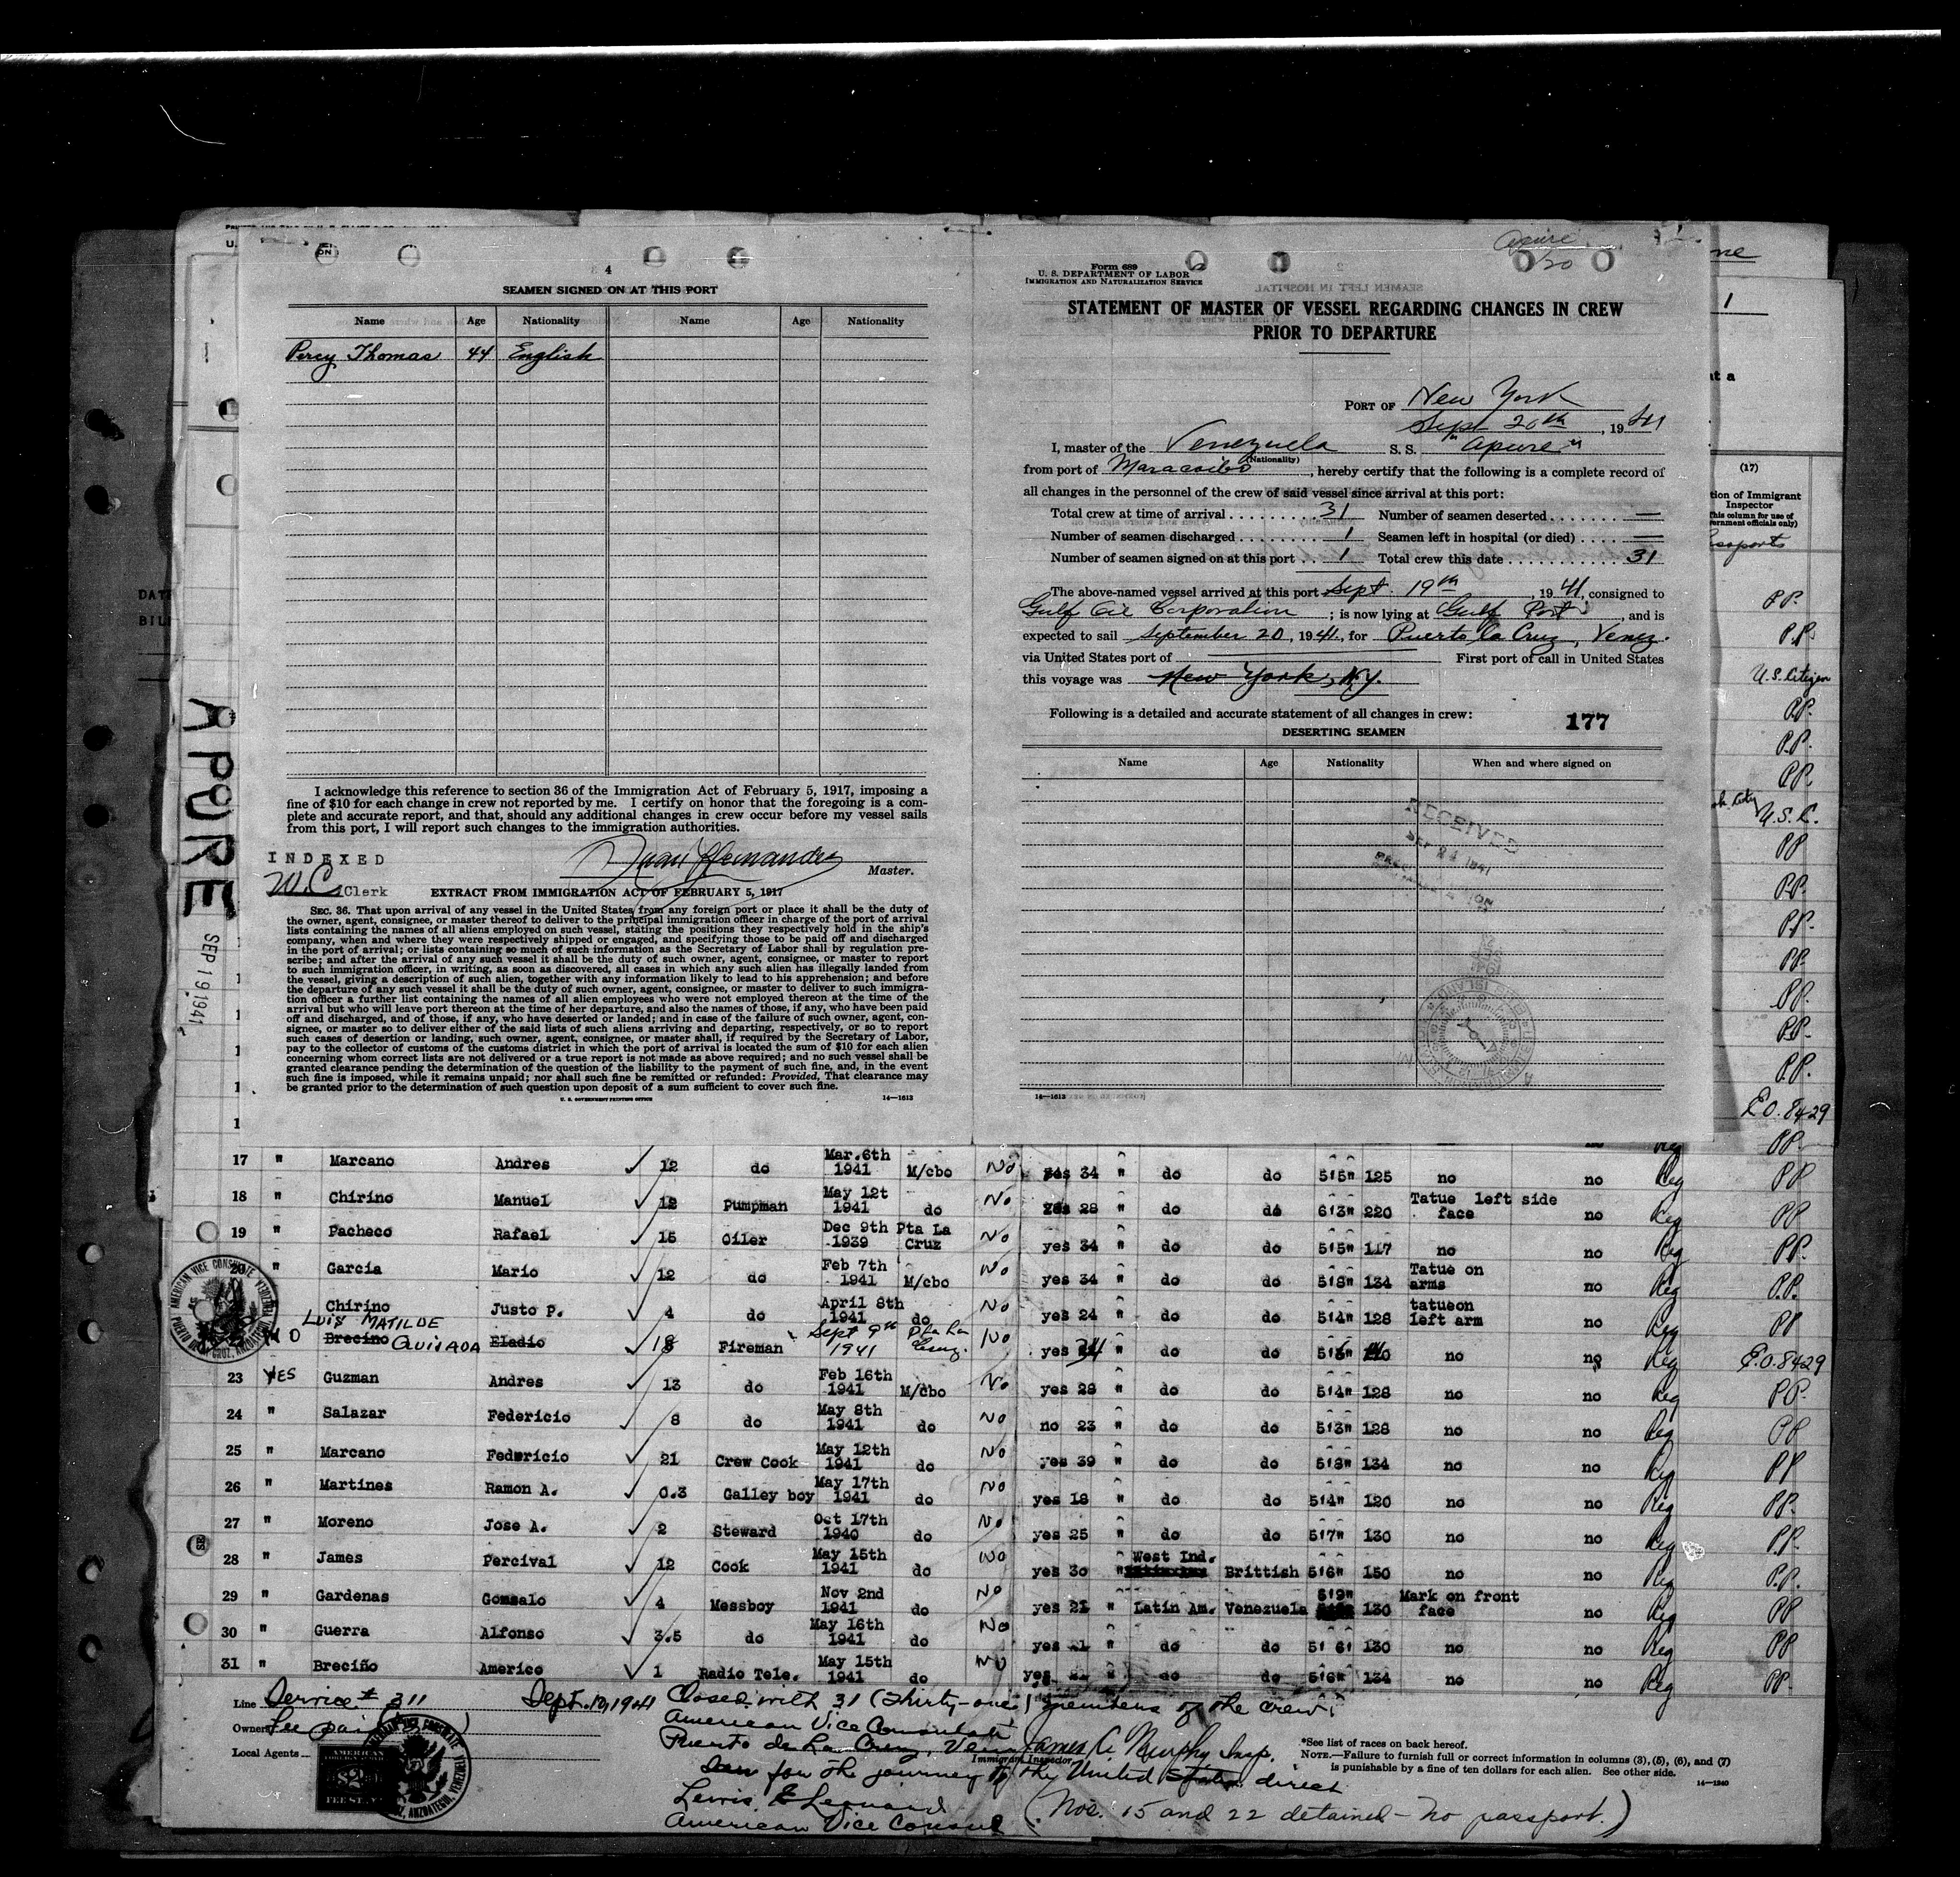 4
SEAMEN SIGNED ON AT THIS PORT
Name Age Nationality Name Age Nationality
Percy Thomas 44 English
I acknowledge this reference to section 36 of the Immigration Act of February 5, 1917, imposing a
fine of $10 for each change in crew not reported by me. I certify on honor that the foregoing is a com-
plete and accurate report, and that, should any additional changes in crew occur before my vessel sails
from this port, I will report such changes to the immigration authorities.
INDEXED
Juan Hernandez
Master.
W.C. Clerk
EXTRACT FROM IMMIGRATION ACT OF FEBRUARY 5, 1917
SEC. 36. That upon arrival of any vessel in the United States from any foreign port or place it shall be the duty of
the owner, agent, consignee, or master thereof to deliver to the principal immigration officer in charge of the port of arrival
lists containing the names of all aliens employed on such vessel, stating the positions they respectively hold in the ship's
company, when and where they were respectively shipped or engaged, and specifying those to be paid off and discharged
in the port of arrival; or lists containing so much of such information as the Secretary of Labor shall by regulation pre-
scribe; and after the arrival of any such vessel it shall be the duty of such owner, agent, consignee, or master to report
to such immigration officer, in writing, as soon as discovered, all cases in which any such alien has illegally landed from
the vessel, giving a description of such alien, together with any information likely to lead to his apprehension; and before
the departure of any such vessel it shall be the duty of such owner, agent, consignee, or master to deliver to such immigra-
tion officer a further list containing the names of all alien employees who were not employed thereon at the time of the
arrival but who will leave port thereon at the time of her departure, and also the names of those, if any, who have been paid
off and discharged, and of those, if any, who have deserted or landed; and in case of the failure of such owner, agent, con-
signee, or master so to deliver either of the said lists of such aliens arriving and departing, respectively, or so to report
such cases of desertion or landing, such owner, agent, consignee, or master shall, if required by the Secretary of Labor,
pay to the collector of customs of the customs district in which the port of arrival is located the sum of $10 for each alien
concerning whom correct lists are not delivered or a true report is not made as above required; and no such vessel shall be
granted clearance pending the determination of the question of the liability to the payment of such fine, and, in the event
such fine is imposed, while it remains unpaid; nor shall such fine be remitted or refunded: Provided, That clearance may
be granted prior to the determination of such question upon deposit of a sum sufficient to cover such fine.
U. S. GOVERNMENT PRINTING OFFICE 14—1613
Apure
Form 689
U. S. DEPARTMENT OF LABOR
IMMIGRATION AND NATURALIZATION SERVICE
STATEMENT OF MASTER OF VESSEL REGARDING CHANGES IN CREW
PRIOR TO DEPARTURE
PORT OF New York
Sept 20th, 1941
I, master of the Venezuela S. S. "Apure"
(Nationality)
from port of Maracaibo, hereby certify that the following is a complete record of
all changes in the personnel of the crew of said vessel since arrival at this port:
Total crew at time of arrival 31 Number of seamen deserted —
Number of seamen discharged 1 Seamen left in hospital (or died) —
Number of seamen signed on at this port 1 Total crew this date 31
The above-named vessel arrived at this port Sept. 19th, 1941, consigned to
Gulf Oil Corporation; is now lying at Gulf Port, and is
expected to sail September 20, 1941, for Puerto la Cruz, Venez.
via United States port of First port of call in United States
this voyage was New York, N.Y.
Following is a detailed and accurate statement of all changes in crew: 177
DESERTING SEAMEN
Name Age Nationality When and where signed on
RECEIVED
SEP 24 1941
14—1613
APURE
SEP 19 1941
(17)
tion of Immigrant
Inspector
(This column for use of
Government officials only)
PP.
P.P.
U.S. Citizen
P.P.
P.P.
P.P.
U.S.C.
PP
P.P.
P.P.
PP.
P.P.
P.P.
P.P.
E.O. 8429
PP.
17 " Marcano Andres ✓ 12 do Mar.6th 1941 M/cbo No yes 34 " do do 5'5" 125 no no Reg PP
18 " Chirino Manuel ✓ 12 Pumpman May 12t 1941 do No yes 28 " do do 6'3" 220 Tatue left side face no Reg PP
19 " Pacheco Rafael ✓ 15 Oiler Dec 9th 1939 Pta La Cruz No yes 34 " do do 5'5" 117 no no Reg PP.
20 " Garcia Mario ✓ 12 do Feb 7th 1941 M/cbo No yes 34 " do do 5'8" 134 Tatue on arms no Reg P.P.
Chirino Justo P. ✓ 4 do April 8th 1941 do No yes 24 " do do 5'4" 128 tatueon left arm no Reg PP
LUIS MATILDE
NO Brecino QUIJADA Eladio ✓ 18 Fireman Sept 9th 1941 Pta La Cruz. No yes 34 " do do no no Reg E.O. 8429
23 YES Guzman Andres ✓ 13 do Feb 16th 1941 M/cbo No yes 28 " do do 5'4" 128 no no Reg P.P.
24 " Salazar Federicio ✓ 8 do May 8th 1941 do No no 23 " do do 5'3" 128 no no Reg PP
25 " Marcano Federicio ✓ 21 Crew Cook May 12th 1941 do No yes 39 " do do 5'8" 134 no no Reg PP
26 " Martines Ramon A. ✓ 0.3 Galley boy May 17th 1941 do No yes 18 " do do 5'4" 120 no no Reg PP.
27 " Moreno Jose A. ✓ 2 Steward Oct 17th 1940 do No yes 25 " do do 5'7" 130 no no Reg P.P.
28 " James Percival ✓ 12 Cook May 15th 1941 do No yes 30 " West Ind. Brittish 5'6" 150 no no Reg P.P.
29 " Gardenas Gonsalo ✓ 4 Messboy Nov 2nd 1941 do No yes 21 " Latin Am. Venezuela 5'9" 130 Mark on front face no Reg PP
30 " Guerra Alfonso ✓ 3.5 do May 16th 1941 do No yes " do do 5' 6' 130 no no Reg PP
31 " Breciño Americo ✓ 1 Radio Tele. May 15th 1941 do No yes " do do 5'6" 134 no no Reg PP.
Line Service # 311 Sept. 10, 1941 Closed with 31 (thirty-one) members of the crew.
American Vice Consulate
Owners Fee paid
Puerto de La Cruz, Venez. James A. Murphy Insp.
Immigrant Inspector
Local Agents
for the journey to the United States direct
Lewis E Leonard
American Vice Consul (Nos. 15 and 22 detained – no passport.)
*See list of races on back hereof.
NOTE.—Failure to furnish full or correct information in columns (3), (5), (6), and (7)
is punishable by a fine of ten dollars for each alien. See other side.
14—1240